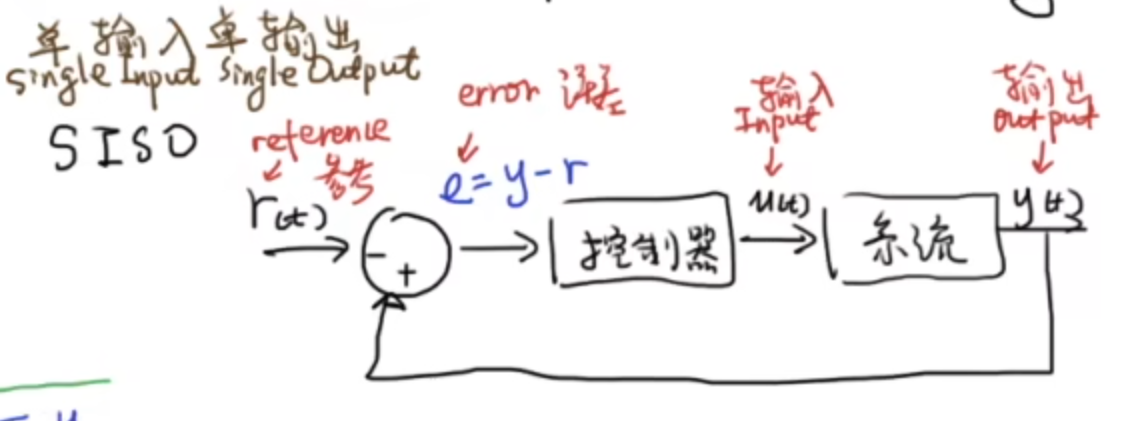 单输入单输出
Single Input Single Output
SISO
reference
参考
r(t)
error 误差
e = y - r
输入
Input
u(t)
输出
output
y(t)
-
+
控制器
系统